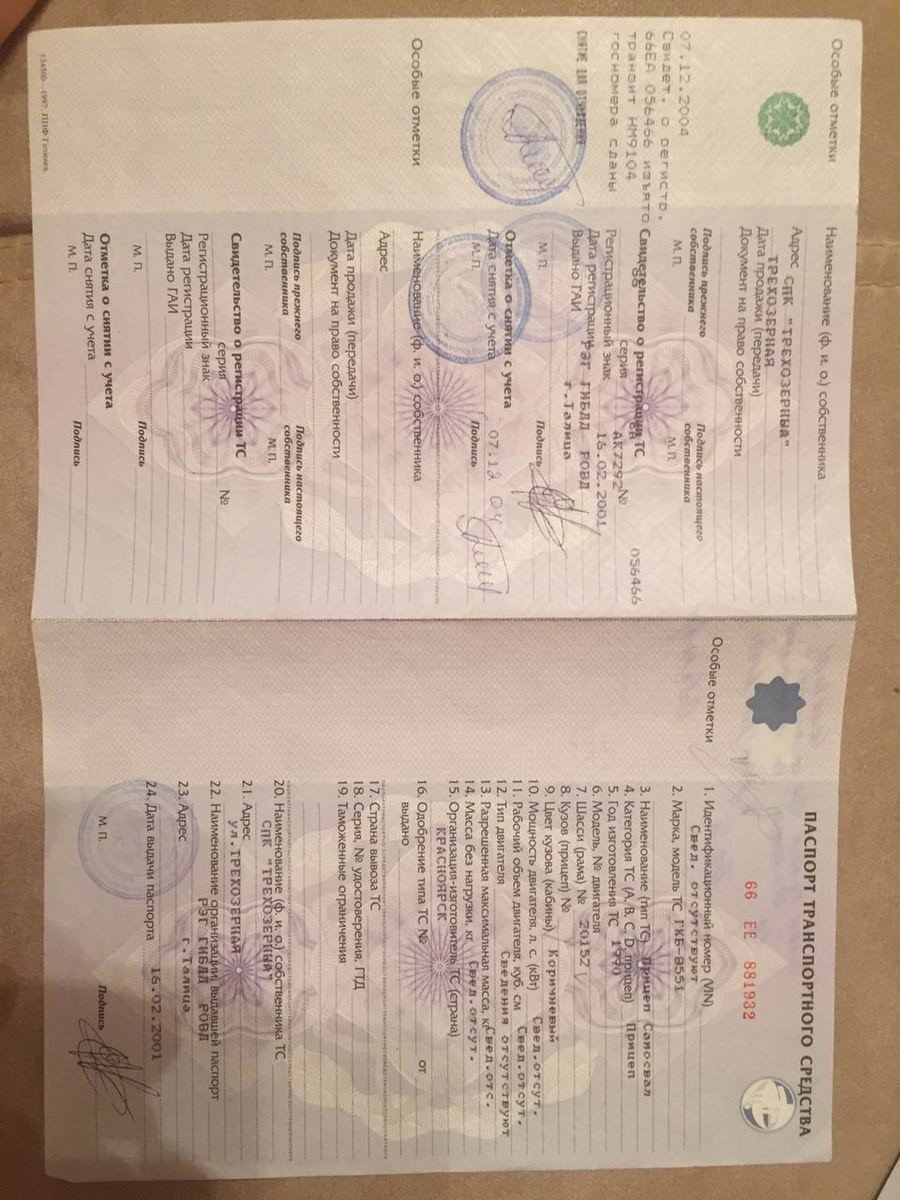 ПАСПОРТ ТРАНСПОРТНОГО СРЕДСТВА
66 ЕЕ 881932
1. Идентификационный номер (VIN)
Свед. отсутствуют
2. Марка, модель ТС ГКБ-8551
3. Наименование (тип ТС) Прицеп Самосвал
4. Категория ТС (А, В, С, D, прицеп) Прицеп
5. Год изготовления ТС 1990
6. Модель, № двигателя
7. Шасси (рама) № 20152
8. Кузов (прицеп) №
9. Цвет кузова (кабины) Коричневый
10. Мощность двигателя, л. с. (кВт) Свед.отсут.
11. Рабочий объем двигателя, куб. см Свед.отсут.
12. Тип двигателя Сведения отсутствуют
13. Разрешенная максимальная масса, кг Свед.отс.
14. Масса без нагрузки, кг Свед.отсут.
15. Организация-изготовитель ТС (страна)
КРАСНОЯРСК
16. Одобрение типа ТС № от
выдано
17. Страна вывоза ТС
18. Серия, № удостоверения, ГТД
19. Таможенные ограничения
20. Наименование (ф. и. о.) собственника ТС
СПК "ТРЕХОЗЕРНЫЙ"
21. Адрес
ул.ТРЕХОЗЕРНАЯ
22. Наименование организации, выдавшей паспорт
РЭГ ГИБДД РОВД
23. Адрес г.Талица
24. Дата выдачи паспорта 16.02.2001
М. П. Подпись
Особые отметки
Особые отметки
07.12.2004
Свидет. о регистр.
66ЕА 056466 изъято
транзит НМ9104
госномера сданы
СНЯТИЕ ДЛЯ ОТЧУЖДЕНИЯ
Особые отметки
134500—1997. ППФ Гознака.
Наименование (ф. и. о.) собственника
СПК "ТРЕХОЗЕРНЫЙ"
Адрес ТРЕХОЗЕРНАЯ
Дата продажи (передачи)
Документ на право собственности
Подпись прежнего собственника
Подпись настоящего собственника
М. П. М. П.
Свидетельство о регистрации ТС
66 серия ЕА № 056466
Регистрационный знак АК7292
Дата регистрации 16.02.2001
Выдано ГАИ РЭГ ГИБДД РОВД
г.Талица
М. П. Подпись
Отметка о снятии с учета
Дата снятия с учета 07.12 04
М. П. Подпись
Наименование (ф. и. о.) собственника
Адрес
Дата продажи (передачи)
Документ на право собственности
Подпись прежнего собственника
Подпись настоящего собственника
М. П. М. П.
Свидетельство о регистрации ТС
серия №
Регистрационный знак
Дата регистрации
Выдано ГАИ
М. П. Подпись
Отметка о снятии с учета
Дата снятия с учета
М. П. Подпись